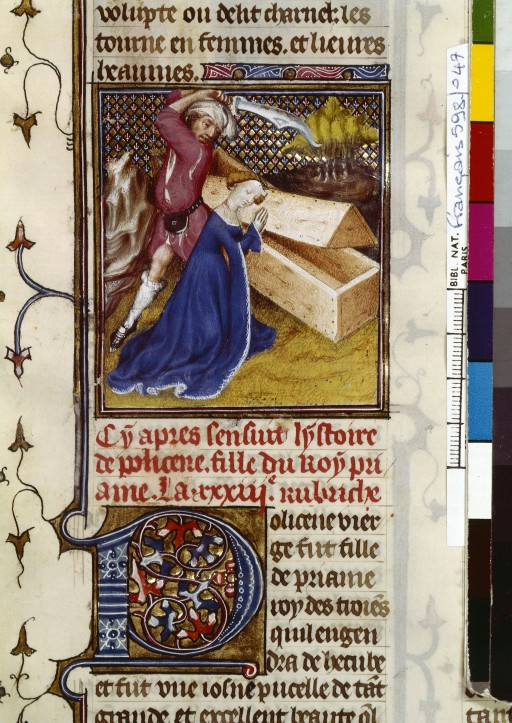 volupte ou delit charnel. les
tourne en femmes. et lieures
beaumes.
Cy apres sensuit lystoire
de policene. fille du Roy pri
ame. La xxxiije. rubriche
Policene vier
ge fut fille
de priame
roy des troiẽs
quil engen
dra de hecube
et fut vne iosne pucelle de tãt
grande et excellent beaute ql
BIBL. NAT. Français 598/049
PARIS